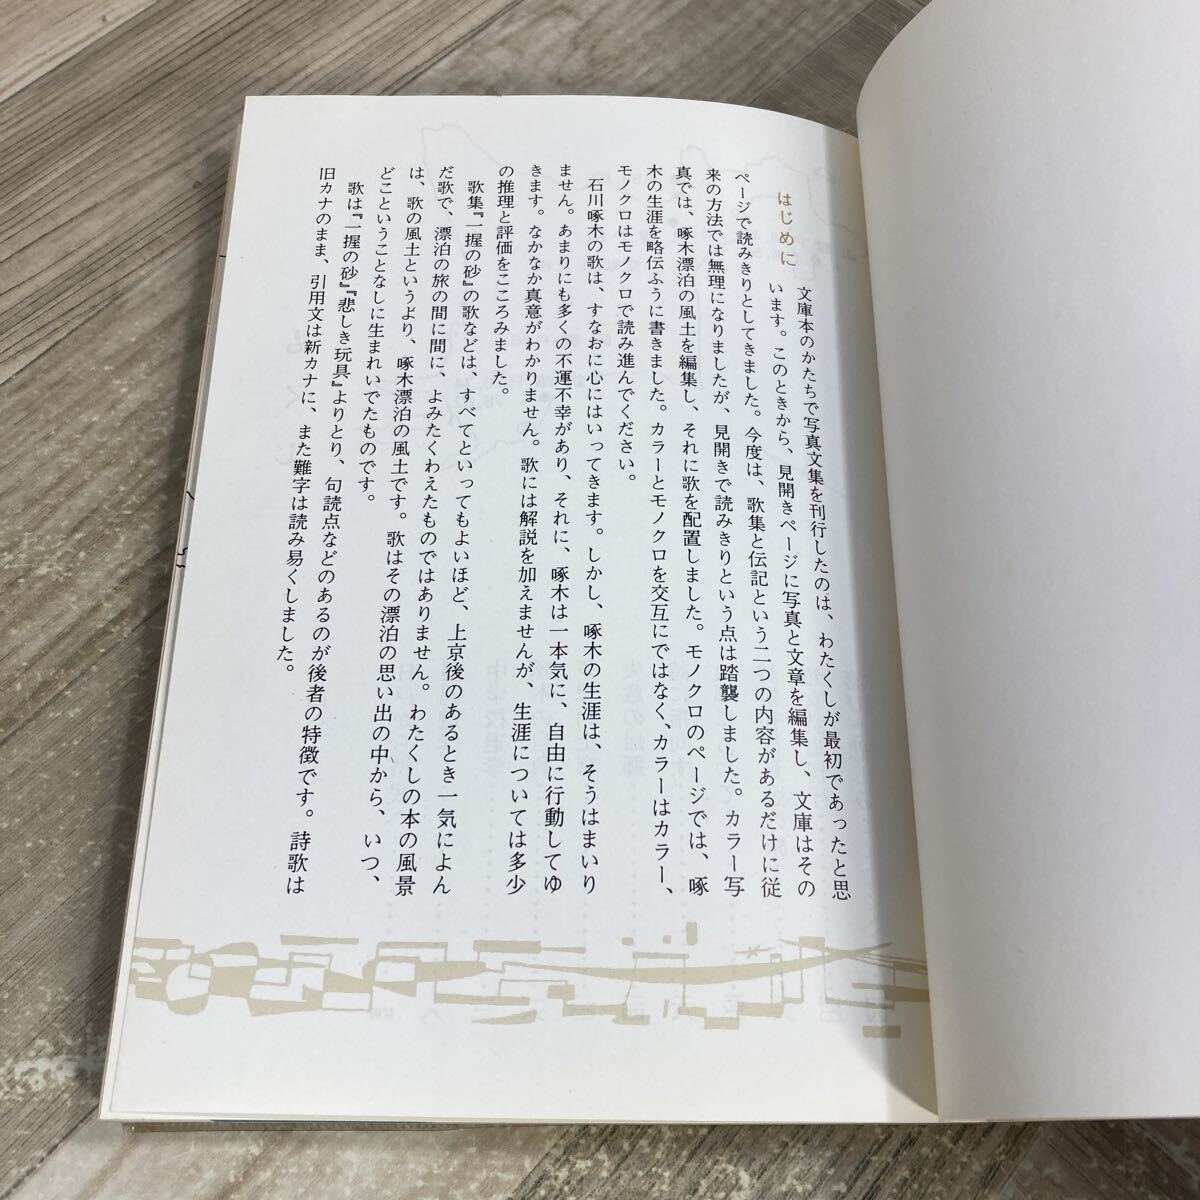 はじめに
文庫本のかたちで写真文集を刊行したのは、わたくしが最初であったと思
います。このときから、見開きページに写真と文章を編集し、文庫はその
ページで読みきりとしてきました。今度は、歌集と伝記という二つの内容があるだけに従
来の方法では無理になりましたが、見開きで読みきりという点は踏襲しました。カラー写
真では、啄木漂泊の風土を編集し、それに歌を配置しました。モノクロのページでは、啄
木の生涯を略伝ふうに書きました。カラーとモノクロを交互にではなく、カラーはカラー、
モノクロはモノクロで読み進んでください。
石川啄木の歌は、すなおに心にはいってきます。しかし、啄木の生涯は、そうはまいり
ません。あまりにも多くの不運不幸があり、それに、啄木は一本気に、自由に行動してゆ
きます。なかなか真意がわかりません。歌には解説を加えませんが、生涯については多少
の推理と評価をこころみました。
歌集『一握の砂』の歌などは、すべてといってもよいほど、上京後のあるとき一気によん
だ歌で、漂泊の旅の間に間に、よみたくわえたものではありません。わたくしの本の風景
は、歌の風土というより、啄木漂泊の風土です。歌はその漂泊の思い出の中から、いつ、
どこということなしに生まれいでたものです。
歌は『一握の砂』『悲しき玩具』よりとり、句読点などのあるのが後者の特徴です。詩歌は
旧カナのまま、引用文は新カナに、また難字は読み易くしました。